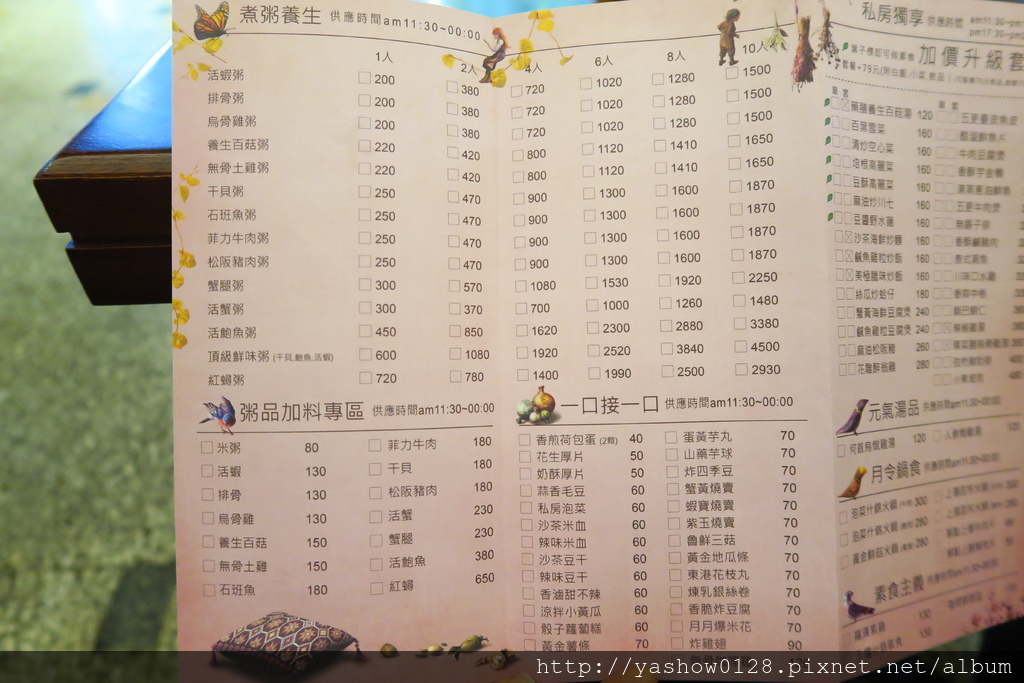 煮粥養生 供應時間am11:30~00:00
1人 2人 4人 6人 8人 10人
活蝦粥 200 380 720 1020 1280 1500
排骨粥 200 380 720 1020 1280 1500
烏骨雞粥 200 380 720 1020 1280 1500
養生百菇粥 220 420 800 1120 1410 1650
無骨土雞粥 220 420 800 1120 1410 1650
干貝粥 250 470 900 1300 1600 1870
石班魚粥 250 470 900 1300 1600 1870
菲力牛肉粥 250 470 900 1300 1600 1870
松阪豬肉粥 250 470 900 1300 1600 1870
蟹腿粥 300 570 1080 1530 1920 2250
活蟹粥 300 370 700 1000 1260 1480
活鮑魚粥 450 850 1620 2300 2880 3380
頂級鮮味粥 (干貝,鮑魚,活蝦) 600 1080 1920 2520 3840 4500
紅蟳粥 720 780 1400 1990 2500 2930
粥品加料專區 供應時間am11:30~00:00
米粥 80
活蝦 130
排骨 130
烏骨雞 130
養生百菇 150
無骨土雞 150
石班魚 180
菲力牛肉 180
干貝 180
松阪豬肉 180
活蟹 230
蟹腿 230
活鮑魚 380
紅蟳 650
一口接一口 供應時間am11:30~00:00
香煎荷包蛋 (2顆) 40
花生厚片 50
奶酥厚片 50
蒜香毛豆 60
私房泡菜 60
沙茶米血 60
辣味米血 60
沙茶豆干 60
辣味豆干 60
香滷甜不辣 60
涼拌小黃瓜 60
骰子蘿蔔糕 60
黃金薯條 70
蛋黃芋丸 70
山藥芋球 70
炸四季豆 70
蟹黃燒賣 70
蝦寶燒賣 70
紫玉燒賣 70
魯鮮三菇 70
黃金地瓜條 70
東港花枝丸 70
煉乳銀絲卷 70
香脆炸豆腐 70
月月爆米花 70
炸雞翅 90
私房獨享 供應時間
加價升級套
藥膳養生百菇湯 120
百葉雪菜 160
清炒空心菜 160
培根高麗菜 160
豆酥高麗菜 160
麻油炒川七 160
豆醬野水蓮 160
沙茶海鮮炒麵 160
鹹魚雞粒炒飯 160
美極臘味炒飯 160
絲瓜炒蛤仔 180
蟹黃海鮮豆腐煲 240
鹹魚雞粒豆腐煲 240
麻油松阪豬 260
花雕醉翁雞 280
元氣湯品 供應時間am11:30~00:00
何首烏燉雞湯 120
月令鍋食 供應時間am11:30~00:00
泡菜什錦火鍋 300
泡菜什錦火鍋 280
黃金鮮菇火鍋 280
素食主義 供應時間am11:30~00:00
http://yashow0128.pixnet.net/album